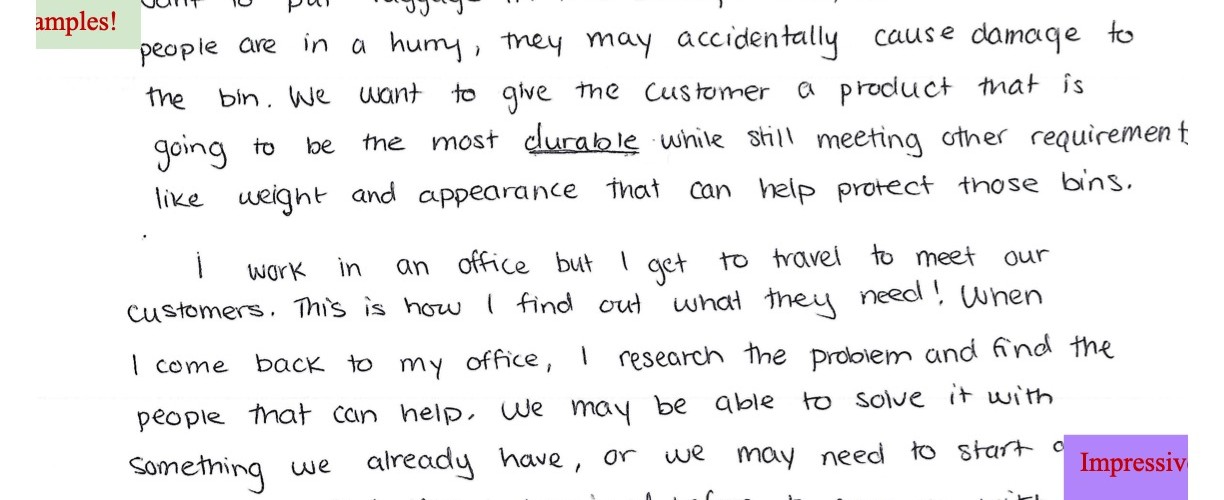 amples!
people are in a hurry, they may accidentally cause damage to
the bin. We want to give the customer a product that is
going to be the most durable while still meeting other requirement
like weight and appearance that can help protect those bins.
I work in an office but I get to travel to meet our
customers. This is how I find out what they need! When
I come back to my office, I research the problem and find the
people that can help. We may be able to solve it with
something we already have, or we may need to start
Impressiv